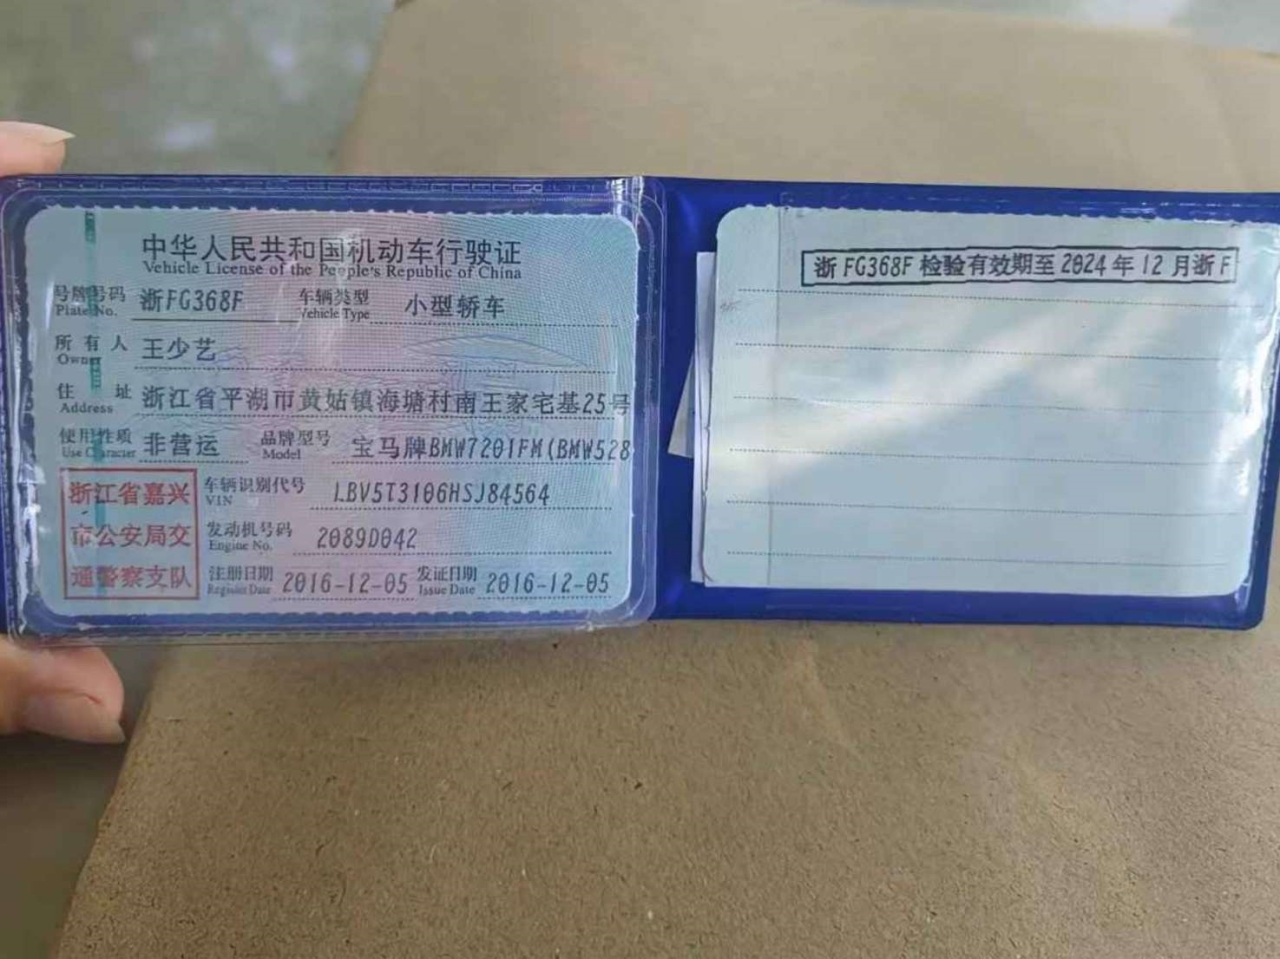 中华人民共和国机动车行驶证
Vehicle License of the People's Republic of China
号牌号码 浙FG368F 车辆类型 小型轿车
Plate No. Vehicle Type
所有人 王少艺
Owner
住址 浙江省平湖市黄姑镇海塘村南王家宅基25号
Address
使用性质 非营运 品牌型号 宝马牌BMW7201FM(BMW528
Use Character Model
浙江省嘉兴
市公安局交
通警察支队
车辆识别代号 LBV5T3106HSJ84564
VIN
发动机号码 2089D042
Engine No.
注册日期 2016-12-05 发证日期 2016-12-05
Register Date Issue Date
浙FG368F 检验有效期至2024年12月浙F